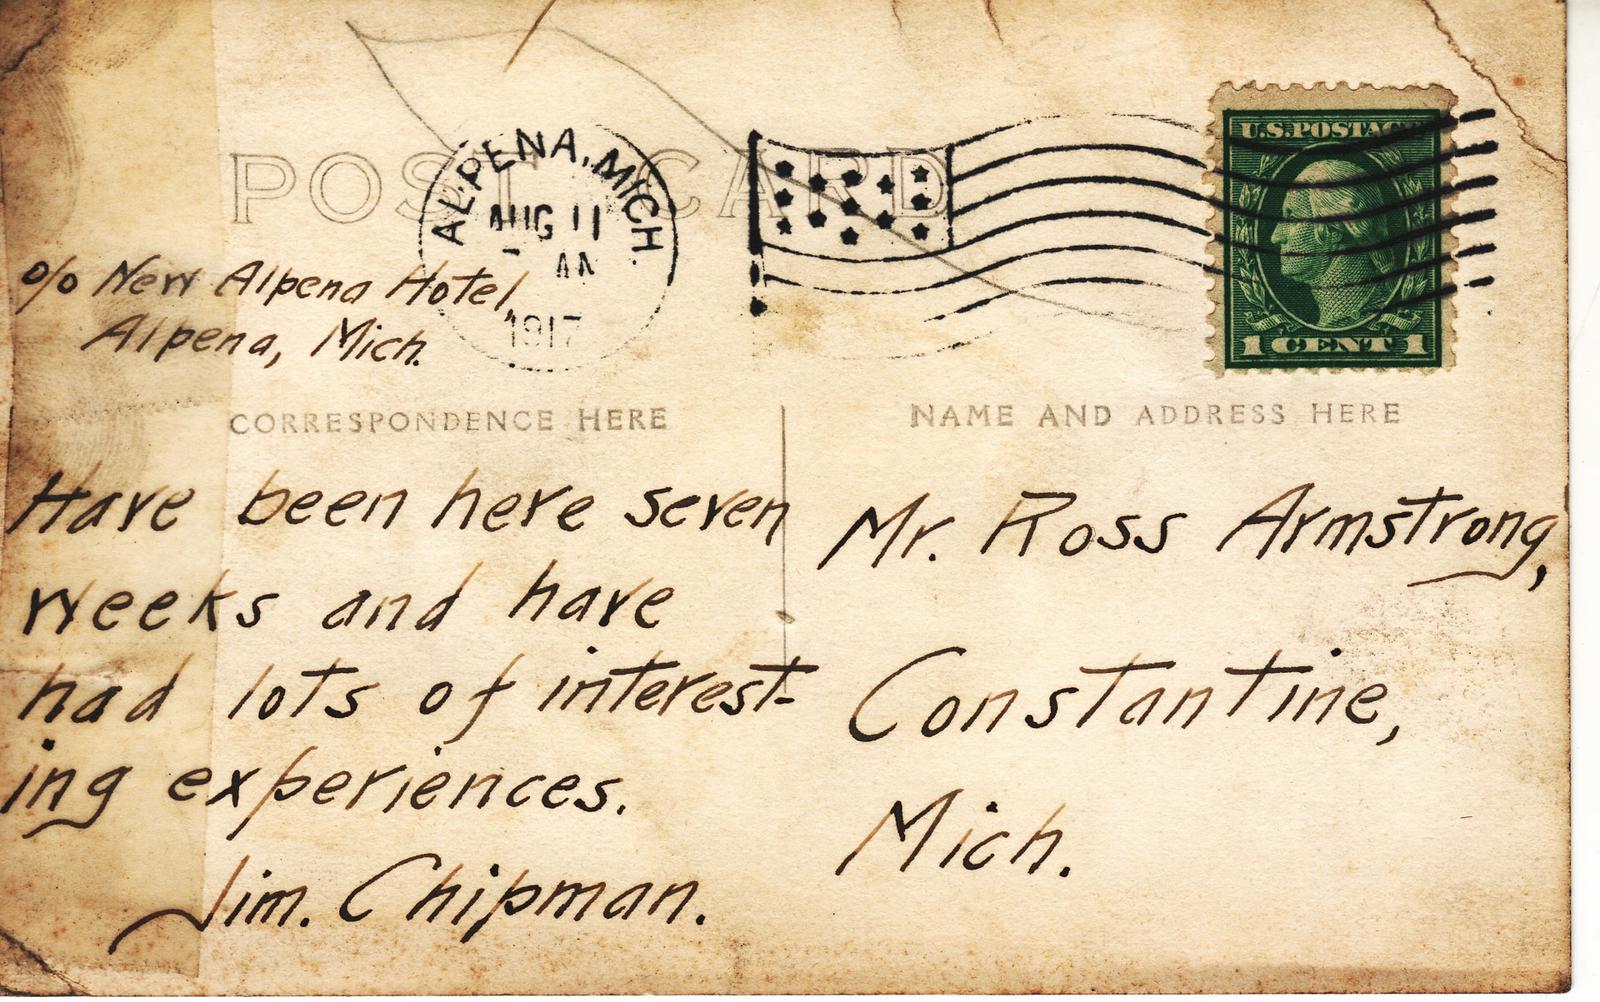 POST CARD
ALPENA, MICH.
AUG 11
AM
1917
U.S. POSTAGE
1 CENT 1
c/o New Alpena Hotel,
Alpena, Mich.
CORRESPONDENCE HERE
NAME AND ADDRESS HERE
Have been here seven
weeks and have
had lots of interest-
ing experiences.
Jim. Chipman.
Mr. Ross Armstrong,
Constantine,
Mich.